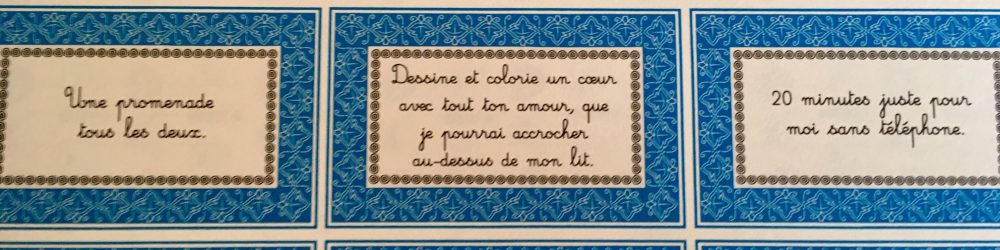 Une promenade
tous les deux.
Dessine et colorie un cœur
avec tout ton amour, que
je pourrai accrocher
au-dessus de mon lit.
20 minutes juste pour
moi sans téléphone.